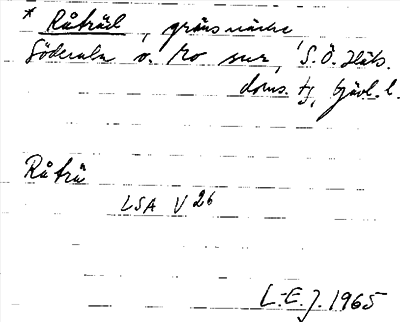 * Råträd, gränsmärke
Söderala o. Mo snr, S.Ö. Häls.
doms. tj, Gävl. l.
Råträ
LSA V 26
L-E. J. 1965